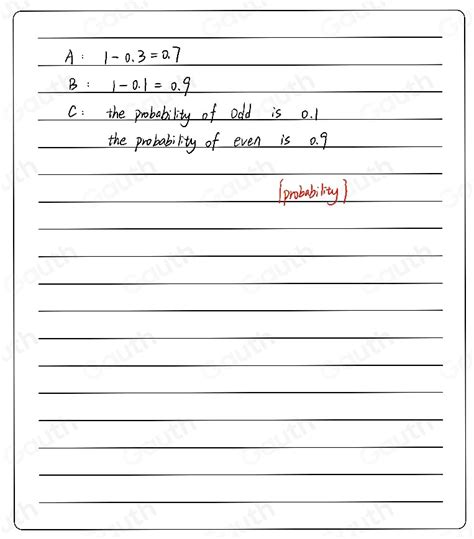 A: 1-0.3=0.7
B: 1-0.1=0.9
C: the probability of odd is 0.1
the probability of even is 0.9
[probability]
Gauth